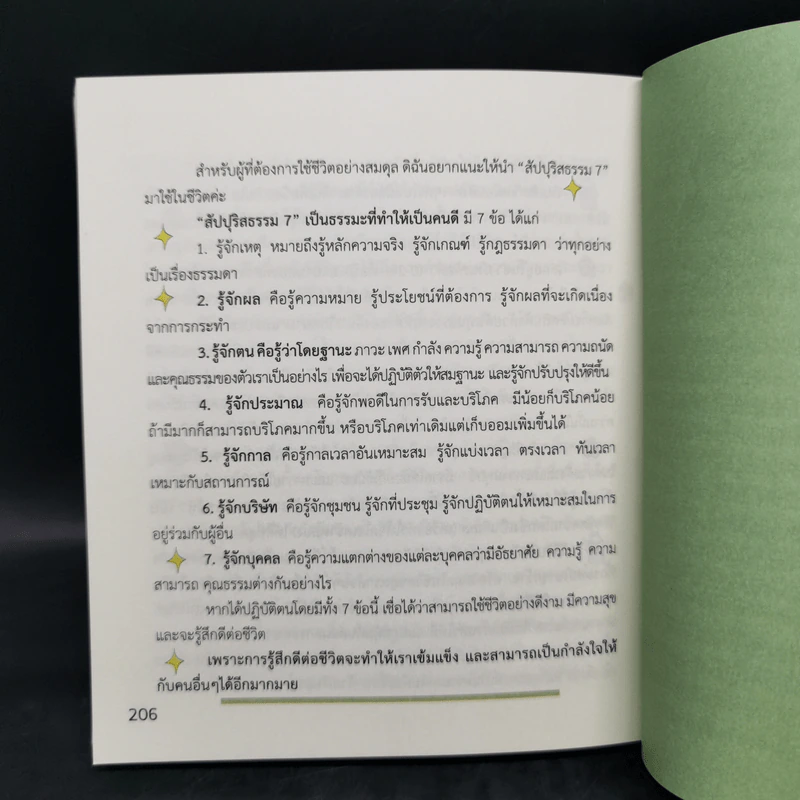 สำหรับผู้ที่ต้องการใช้ชีวิตอย่างสมดุล ดิฉันอยากแนะให้นำ “สัปปุริสธรรม 7”
มาใช้ในชีวิตค่ะ
“สัปปุริสธรรม 7” เป็นธรรมะที่ทำให้เป็นคนดี มี 7 ข้อ ได้แก่
1. รู้จักเหตุ หมายถึงรู้หลักความจริง รู้จักเกณฑ์ รู้กฎธรรมดา ว่าทุกอย่าง
เป็นเรื่องธรรมดา
2. รู้จักผล คือรู้ความหมาย รู้ประโยชน์ที่ต้องการ รู้จักผลที่จะเกิดเนื่อง
จากการกระทำ
3. รู้จักตน คือรู้ว่าโดยฐานะ ภาวะ เพศ กำลัง ความรู้ ความสามารถ ความถนัด
และคุณธรรมของตัวเราเป็นอย่างไร เพื่อจะได้ปฏิบัติตัวให้สมฐานะ และรู้จักปรับปรุงให้ดีขึ้น
4. รู้จักประมาณ คือรู้จักพอดีในการรับและบริโภค มีน้อยก็บริโภคน้อย
ถ้ามีมากก็สามารถบริโภคมากขึ้น หรือบริโภคเท่าเดิมแต่เก็บออมเพิ่มขึ้นได้
5. รู้จักกาล คือรู้กาลเวลาอันเหมาะสม รู้จักแบ่งเวลา ตรงเวลา ทันเวลา
เหมาะกับสถานการณ์
6. รู้จักบริษัท คือรู้จักชุมชน รู้จักที่ประชุม รู้จักปฏิบัติตนให้เหมาะสมในการ
อยู่ร่วมกับผู้อื่น
7. รู้จักบุคคล คือรู้ความแตกต่างของแต่ละบุคคลว่ามีอัธยาศัย ความรู้ ความ
สามารถ คุณธรรมต่างกันอย่างไร
หากได้ปฏิบัติตนโดยมีทั้ง 7 ข้อนี้ เชื่อได้ว่าสามารถใช้ชีวิตอย่างดีงาม มีความสุข
และจะรู้สึกดีต่อชีวิต
เพราะการรู้สึกดีต่อชีวิตจะทำให้เราเข้มแข็ง และสามารถเป็นกำลังใจให้
กับคนอื่นๆได้อีกมากมาย
206